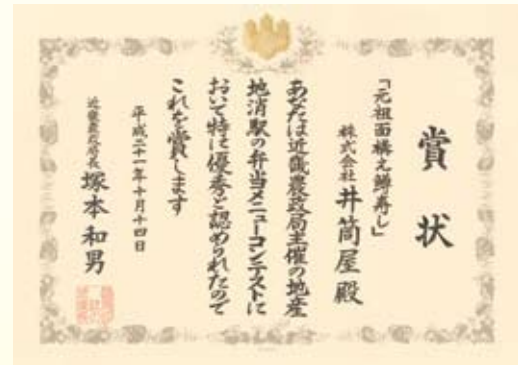 賞状
「元祖面構え鱒寿し」
株式会社 井筒屋 殿
あなたは近畿農政局主催の地産
地消駅の弁当メニューコンテストに
おいて特に優秀と認められたので
これを賞します
平成二十一年十月十四日
近畿農政局長 塚本和男